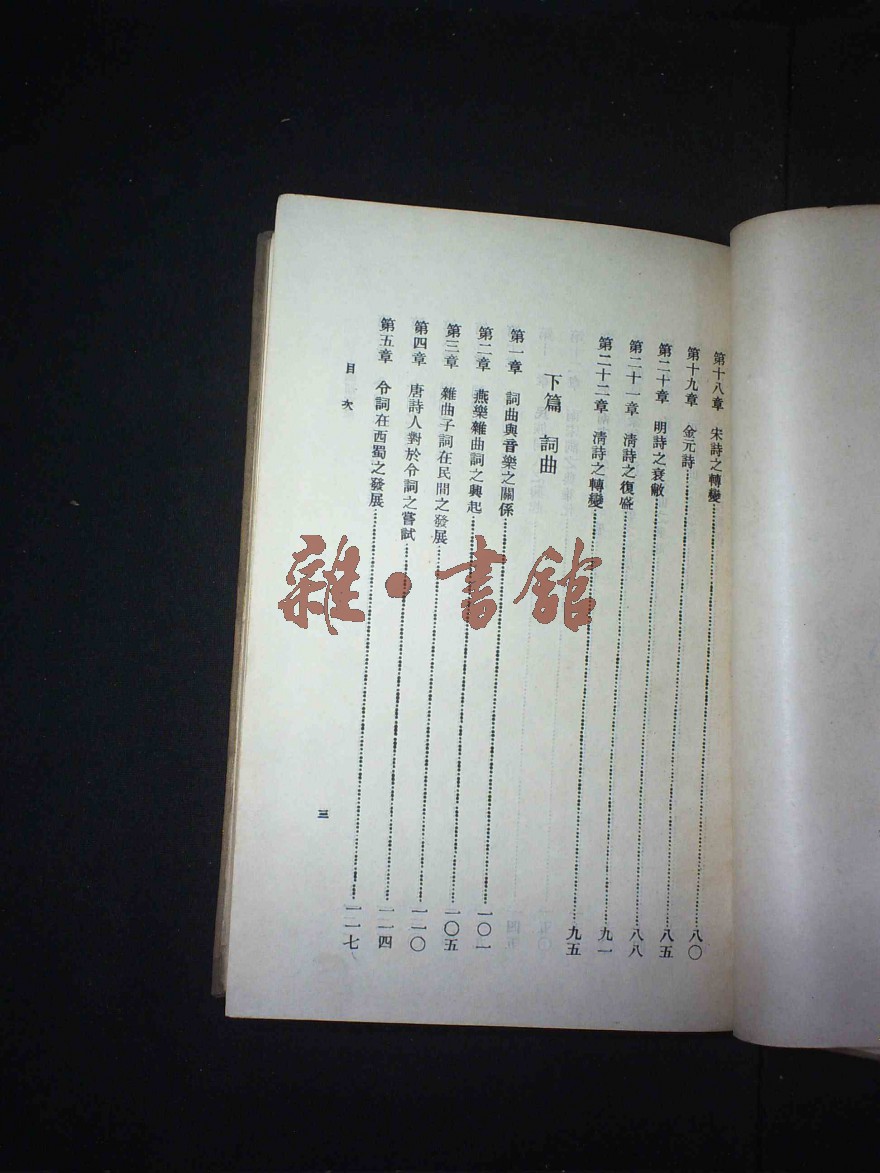 第十八章 宋詩之轉變……八〇
第十九章 金元詩……八五
第二十章 明詩之衰敝……八八
第二十一章 清詩之復盛……九一
第二十二章 清詩之轉變……九五
下篇 詞曲
第一章 詞曲與音樂之關係……一〇一
第二章 燕樂雜曲詞之興起……一〇五
第三章 雜曲子詞在民間之發展……一一〇
第四章 唐詩人對於令詞之嘗試……一一四
第五章 令詞在西蜀之發展……一一七
目次
三
雜·書館